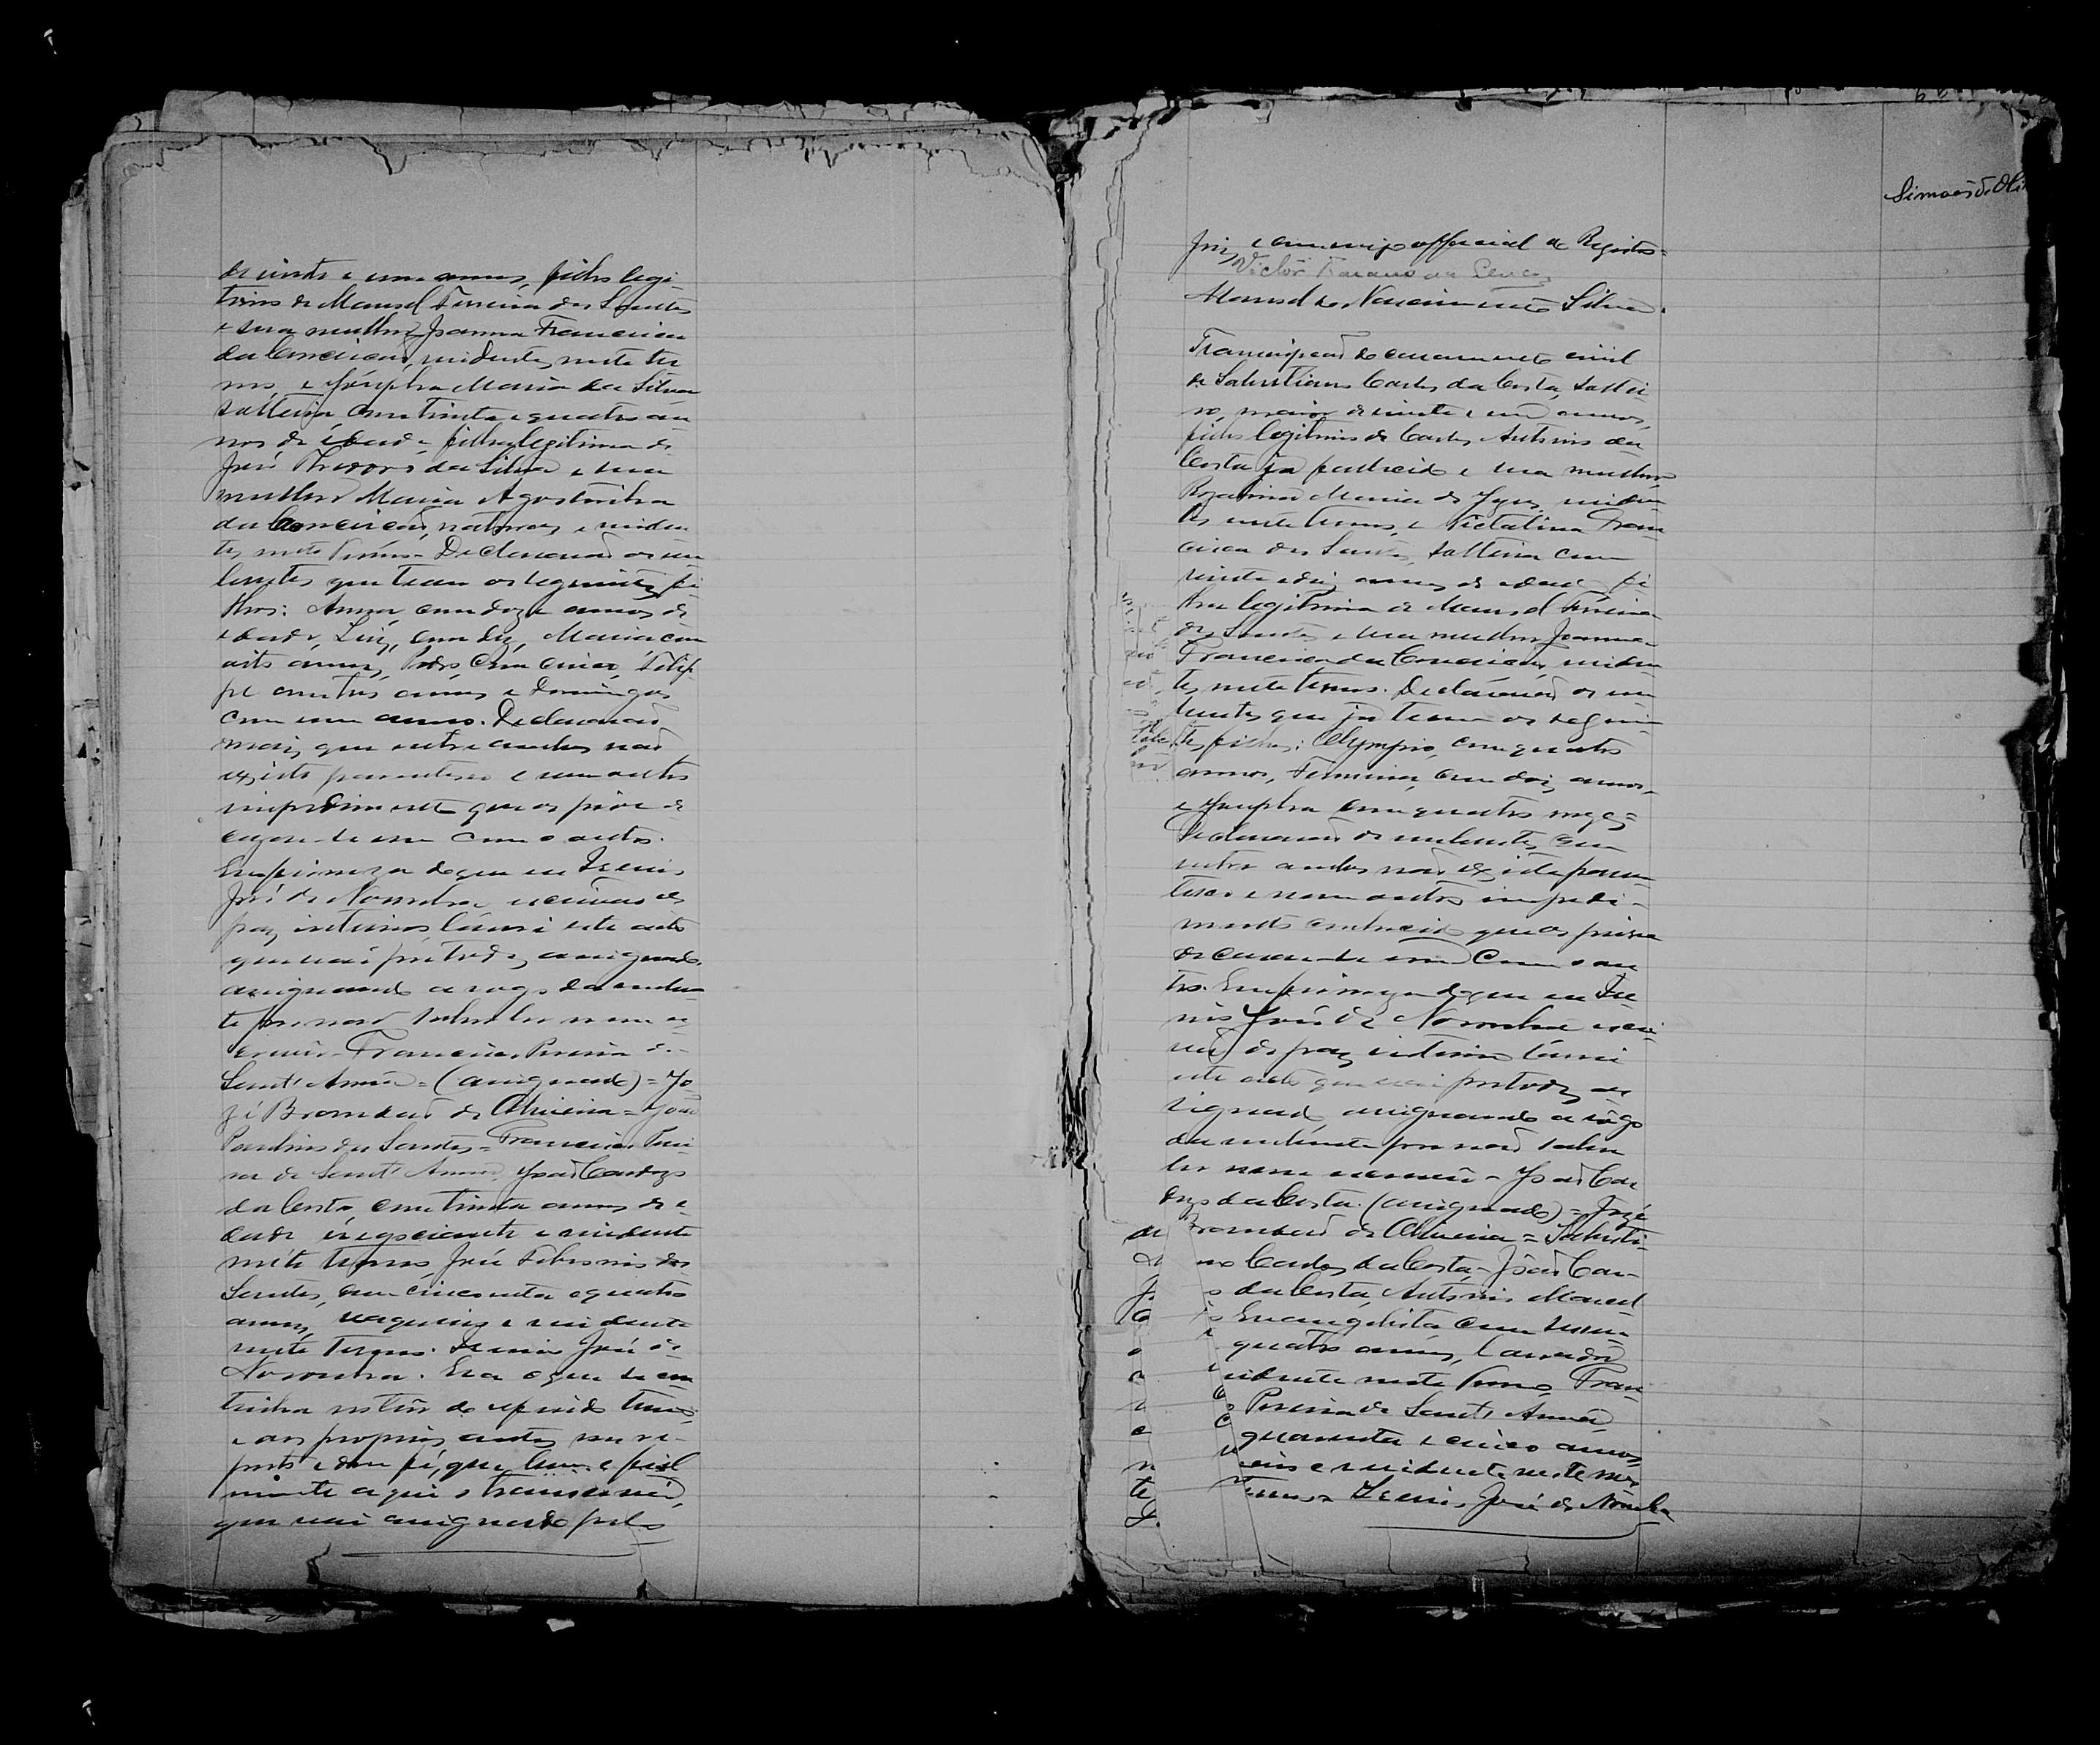 de vinte e um annos, filho legi-
timo de Manoel Ferreira dos Santos
e sua mulher Joanna Francisca
da Conceicaõ, residentes neste ter
mo, e Josepha Maria da Silva
solteira, com trinta e quatro an
nos de idade, filha legitima de
José Theodoro da Silva e sua
mulher Maria Agostinha
da Conceicaõ, naturaes e residen
tes neste Termo. Declararaõ os nu
bentes que tem os seguintes fi
lhos: Anna, com doze annos de
idade, Luiz, com dez, Maria com
oito annos, Pedro com cinco, Felip
pe com tres annos e Domingas
com um anno. Declararaõ
mais que entre ambos naõ
existe parentesco e nem outro
impedimento que os prive de
casar-se um com o outro.
Em firmeza do que eu Irenio
José de Noronha escrivaõ de
paz interino, lavrei este auto
que vai por todos assignado,
assignando a rogo da nuben
te por naõ saber ler nem es
crever Francisco Pereira de
Sant'Anna = (assignado) = Jo
zé Brandaõ de Oliveira = Joaõ
Paulino dos Santos = Francisco Perei
ra de Sant'Anna, Joaõ Cardozo
da Costa, com trinta annos de i
dade, negociante e residente
neste termo, José Liborio dos
Santos, com cincoenta e quatro
annos, vaqueiro e residente
neste Termo. Irenio José de
Noronha. Era o que se con
tinha no teor do referido termo
e aos proprios autos me re-
porto e dou fé, que bem e fiel
mente aqui o transcrevi,
que vai assignado pelo
Simões de Oli
Juiz, e commigo official de Registro =
Victor
Manoel do Nascimento Silva.
Transcripçaõ do casamento civil
de Salustiano Cardoz da Costa, soltei
ro, maior de vinte e um annos,
filho legitimo de Cardoz Antonio da
Costa ja fallecido e sua mulher
Rozalina Maria de Jezus, residen
tes neste termo, e Victalina Fran
cisca dos Santos, solteira com
vinte e dois annos de idade, fi
lha legitima de Manoel Ferreira
dos Santos e sua mulher Joanna
Francisca da Conceicaõ, residen
tes neste termo. Declararaõ os nu
bentes que ja tem os seguin
tes filhos: Olympio, com quatro
annos, Firmina, com dois annos,
e Josepha com quatro mezes =
Declararaõ os nubentes que
entre ambos naõ existe paren
tesco e nem outro impedi-
mento conhecido que os prive
de casar-se um com o ou
tro. Em firmeza do que eu Ire
nio José de Noronha escri
vaõ de paz interino lavrei
este auto que vai por todos as
signado, assignando a rogo
da nubente por naõ saber
ler nem escrever - Joaõ Car
dozo da Costa. (assignado) = Jozé
Brandaõ de Oliveira = Salusti-
no Cardoz da Costa - Joaõ Car-
o da Costa, Antonio Manoel
Evangelista com
quatro annos, lavrador
residente neste Termo, Fran
Pereira de Sant'Anna
quarenta e cinco annos,
e residente neste mes
Termo Irenio José de Noronha